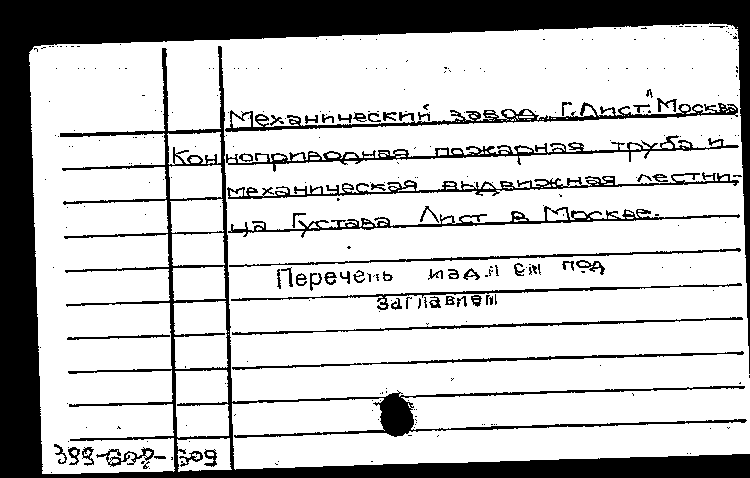 Механический завод „Г. Лист." Москва
Конноприводная пожарная труба и
механическая выдвижная лестни-
ца Густава Лист в Москве.
Перечень изд. см под
заглавием
399-607-609